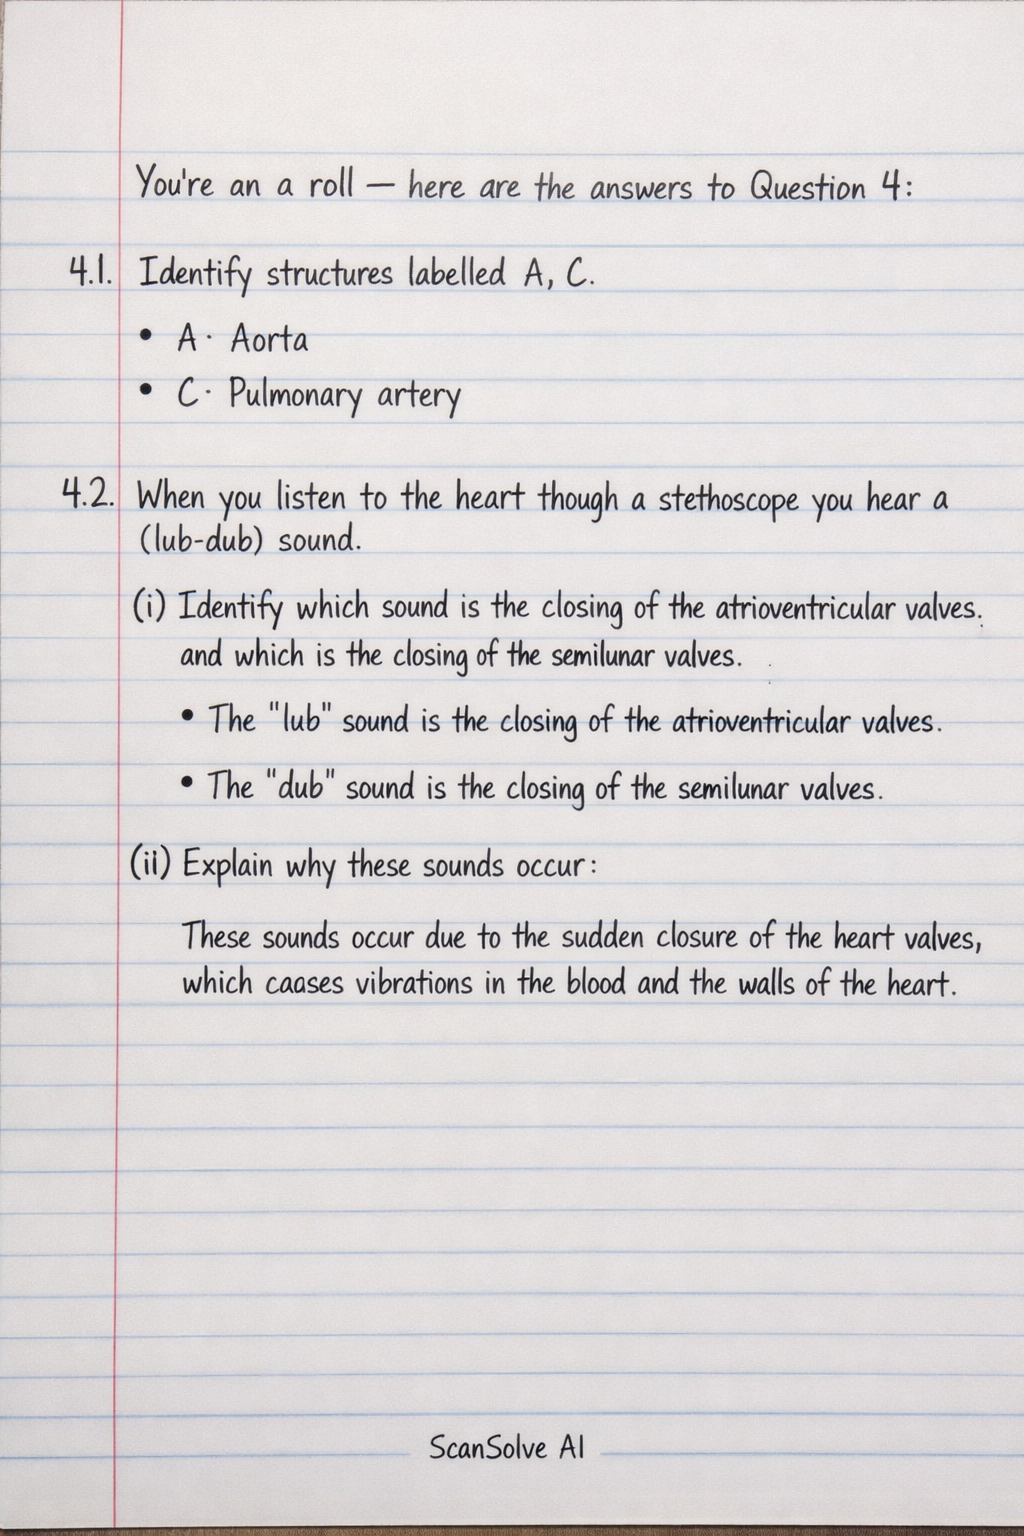 You're an a roll — here are the answers to Question 4:
4.1. Identify structures labelled A, C.
• A · Aorta
• C · Pulmonary artery
4.2. When you listen to the heart though a stethoscope you hear a
(lub-dub) sound.
(i) Identify which sound is the closing of the atrioventricular valves.
and which is the closing of the semilunar valves.
• The "lub" sound is the closing of the atrioventricular valves.
• The "dub" sound is the closing of the semilunar valves.
(ii) Explain why these sounds occur:
These sounds occur due to the sudden closure of the heart valves,
which caases vibrations in the blood and the walls of the heart.
ScanSolve AI